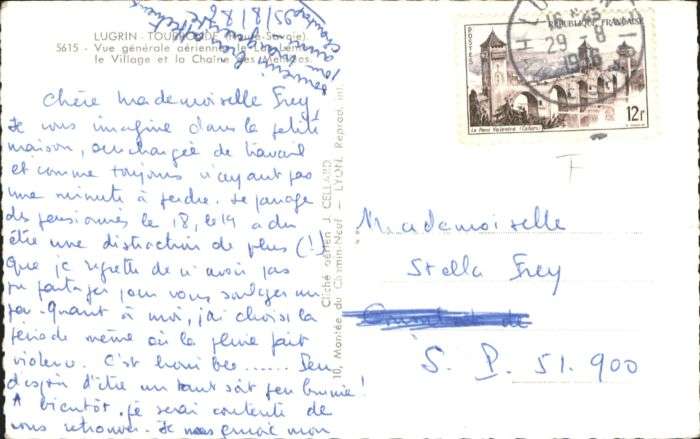 LUGRIN - TOURRONDE (Haute-Savoie)
5615 - Vue générale aérienne, le Lac Léman
le Village et la Chaîne des Mémises.
Chère Mademoiselle Frey,
Je vous imagine dans la petite
maison, surchargée de travail
et comme toujours n'ayant pas
une minute à perdre. Le passage
des pensionnés le 18, le 19 a du
être une distraction de plus (!)
Que je regrette de n'avoir pas
pu partager pour vous soulager un
peu. Quant à moi, j'ai choisi la
période même où la pluie fait
violence. C'est horrible...... Peu
d'espoir d'être un tant soit peu brunie!
A bientôt, je serai contente de
vous retrouver. Je vous envoie mon
souvenir
10, Montée du Chemin-Neuf - LYON. Reprod. int.
Cliché aérien J. CELLARD
POSTES
REPUBLIQUE FRANÇAISE
Le Pont Valentré (Cahors)
12f
29 - 8
1956
F
Mademoiselle
Stella Frey
S. P. 51.900